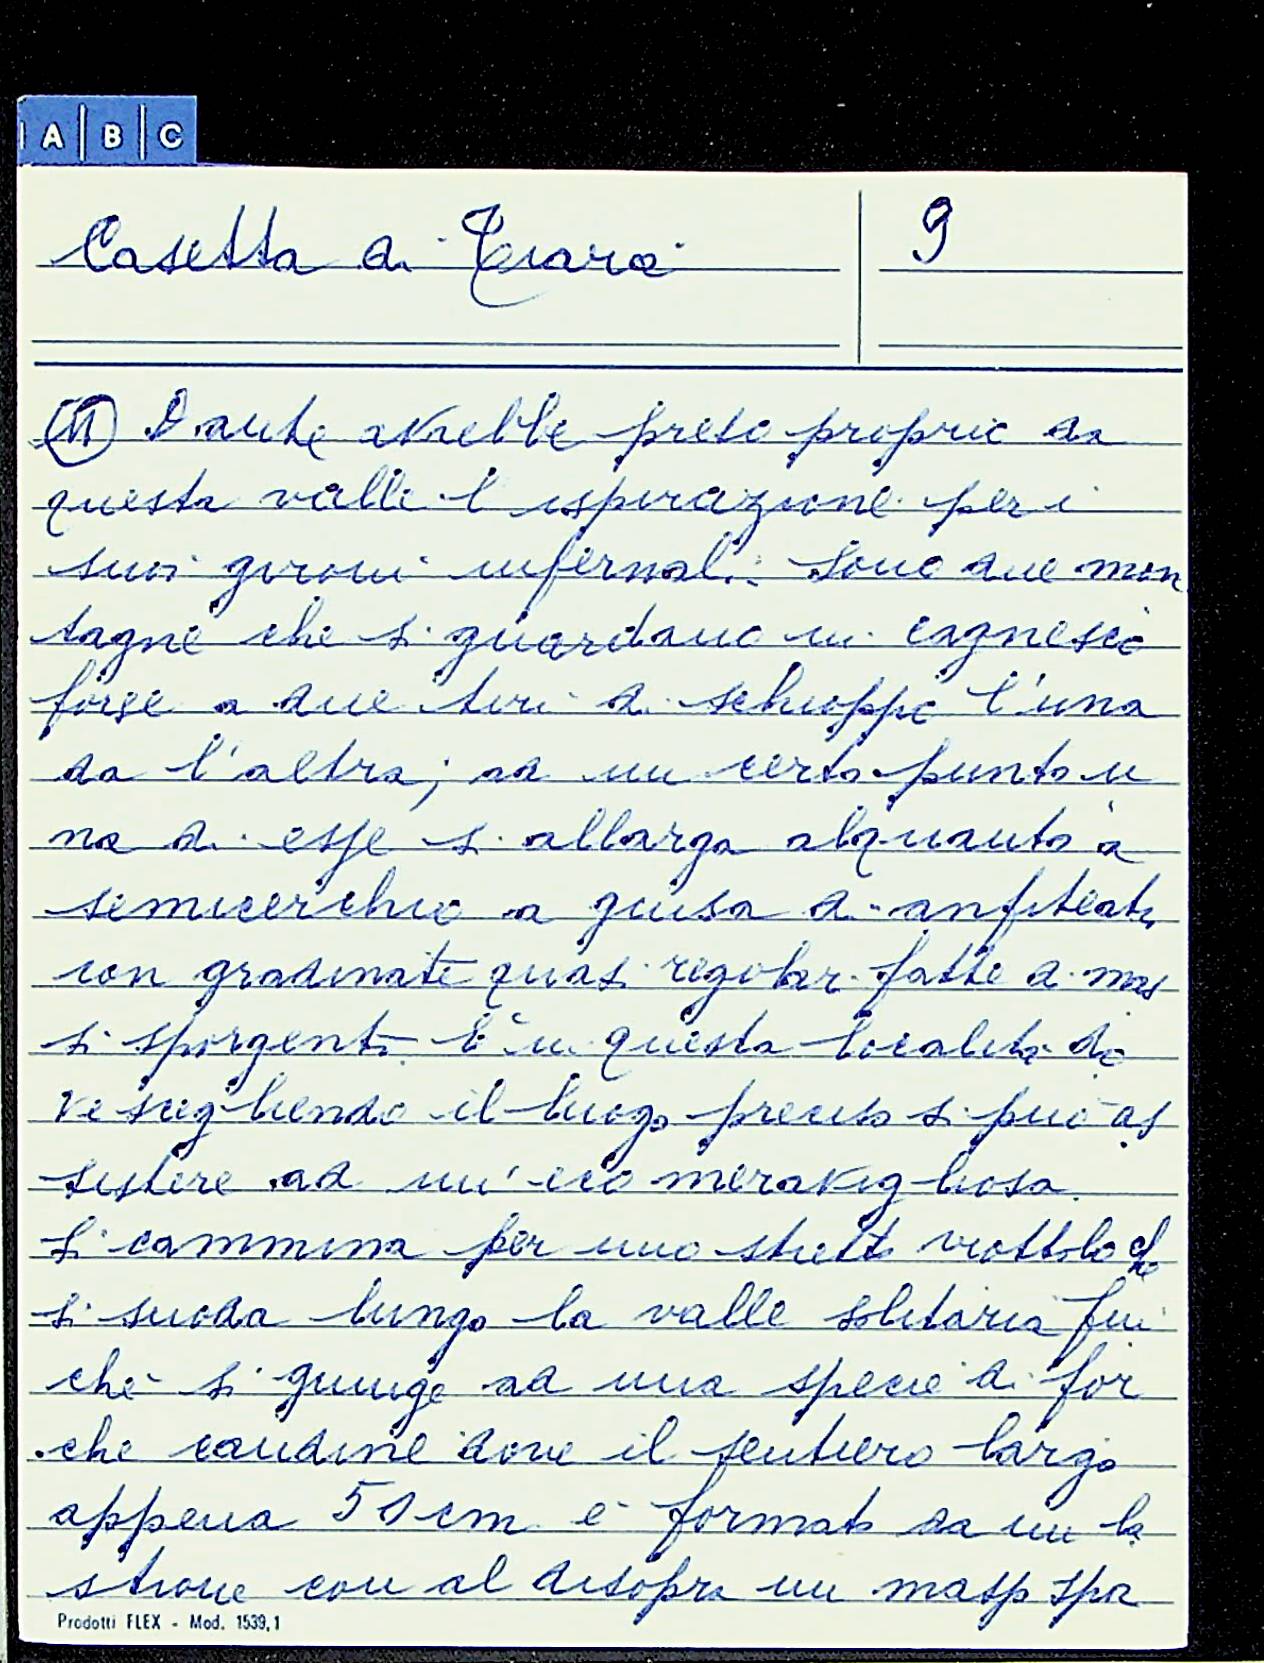 A B C
Casetta di Tiara 9
(11) Dante avrebbe preso proprio da
questa valle l'ispirazione per i
suoi gironi infernali: Sono due mon
tagne che si guardano in cagnesco
forse a due tiri di schioppo l'una
da l'altra; ad un certo punto u
na di esse si allarga alquanto a
semicerchio a guisa di anfiteatro
con gradinate quasi regolari fatte di mas
si sporgenti. È in questa località do
ve scegliendo il luogo preciso si può as
sistere ad un'eco meravigliosa.
Si cammina per uno stretto viottolo che
si snoda lungo la valle solitaria fin
chè si giunge ad una specie di for
che caudine dove il sentiero largo
appena 50 cm è formato da un la
strone con al disopra un masso spor
Prodotti FLEX - Mod. 1539,1